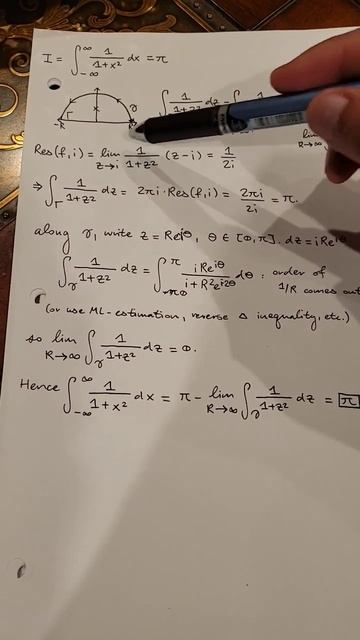 I = ∫_{-∞}^{∞} 1/(1+x²) dx = π
-R x R γ ∫ 1/(1+z²) dz = ∫ 1
lim R→∞
Res(f,i) = lim_{z→i} 1/(1+z²) (z-i) = 1/2i
⇒ ∫_Γ 1/(1+z²) dz = 2πi·Res(f,i) = 2πi/2i = π.
along γ, write z = Re^{iθ}, θ ∈ [0,π]. dz = iRe^{iθ}
∫_γ 1/(1+z²) dz = ∫_0^π iRe^{iθ}/(1+R²e^{i2θ}) dθ : order of
1/R comes out
(or use ML-estimation, reverse Δ inequality, etc.)
so lim_{R→∞} ∫_γ 1/(1+z²) dz = 0.
Hence ∫_{-∞}^{∞} 1/(1+x²) dx = π - lim_{R→∞} ∫_γ 1/(1+z²) dz = π